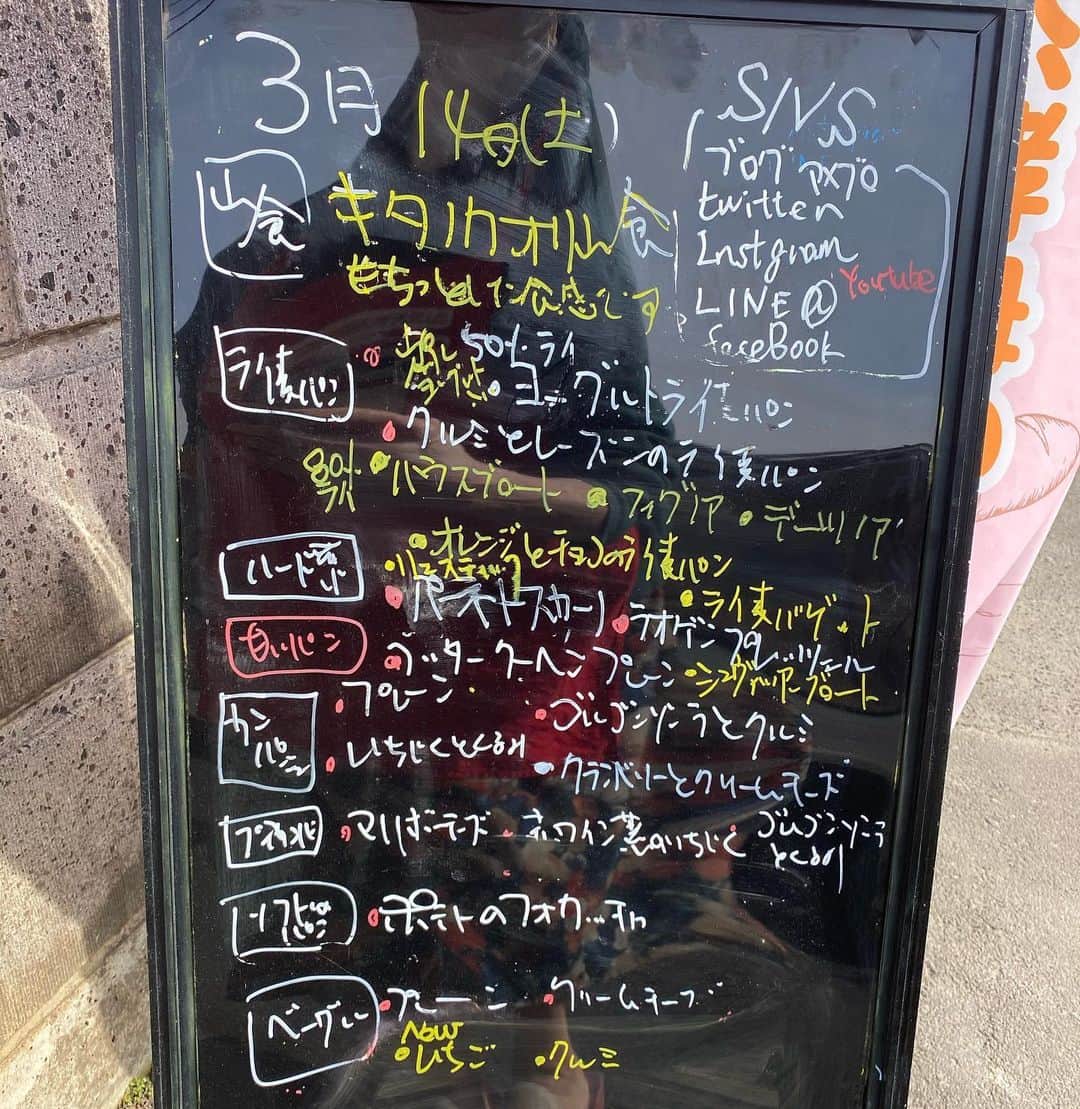 3月14日(土)
SNS
ブログ アメブロ
twitter
Instgram
Youtube
LINE@
faceBook
山食
キタノカオリ山食
もちっとした食感です
ライ麦パン
50%ライ
ヨーグルトライ麦パン
クルミとレーズンのライ麦パン
80%
ハウスブロート
フィグノア
オレンジとチョコのライ麦パン
ハード系
リュスティック
ライ麦バゲット
甘いパン
ラオゲンプレッツェル
バタークーヘン プレーン
カンパーニュ
プレーン
ゴルゴンゾーラとクルミ
いちじくとくるみ
クランベリーとクリームチーズ
マリボチーズ
赤ワイン煮のいちじく
ゴルゴンゾーラとくるみ
ポテトのフォカッチャ
ベーグル
プレーン
クリームチーズ
New
いちご
クルミ